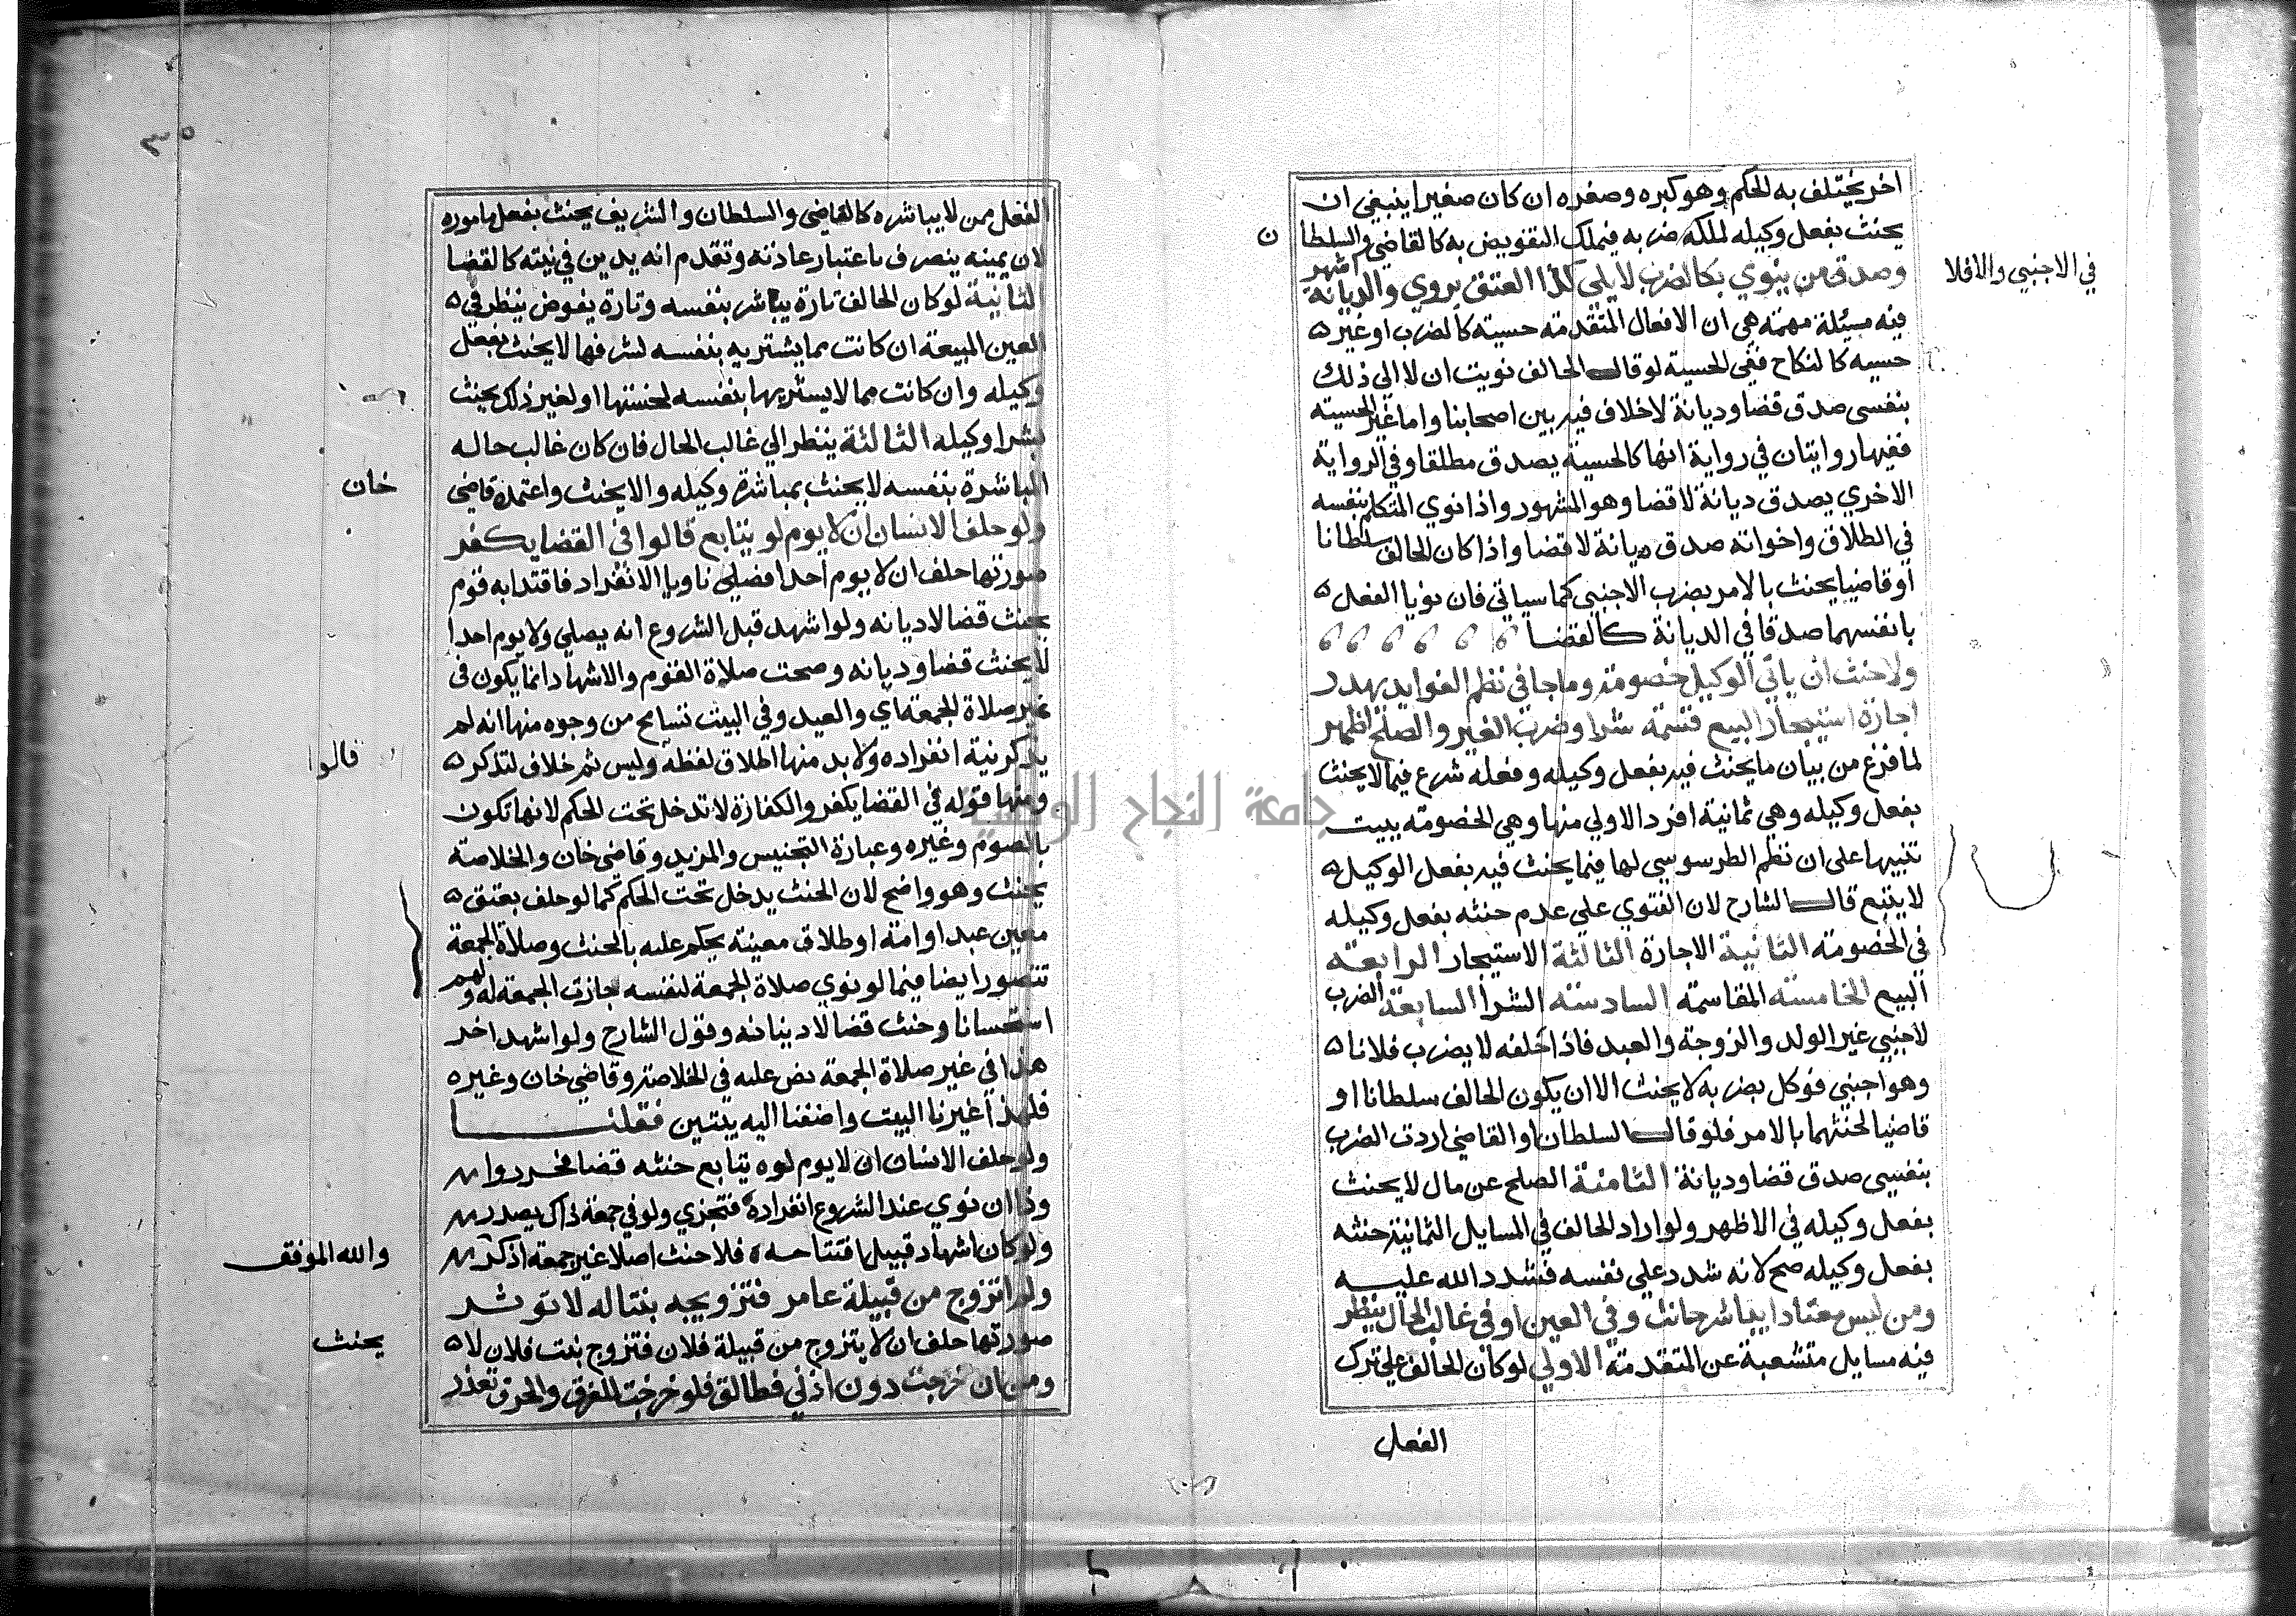 اخر يختلف به الحكم وهو كبره وصغره ان كان صغيرا ينبغي ان
يحنث بفعل وكيله لملكه ضربه فيملك التفويض به كالقاضي والسلطا
ن
في الاجنبي والافلا
وصدق من ينوي بكالضرب لا يلي كذا العتق يروي والديانة اشهر
فيه مسئلة مهمة هي ان الافعال المتقدمة حسيته كالضرب او غير
حسيه كالنكاح ففي الحسية لو قال الحالف نويت ان لا الي ذلك
بنفسي صدق قضا وديانة لاخلاف فيه بين اصحابنا واما غير الحسيته
ففيها روايتان في رواية انها كالحسية يصدق مطلقا وفي الرواية
الاخري يصدق ديانة لا قضا وهو المشهور واذا نوي المتكلم بنفسه
في الطلاق واخواته صدق ديانة لا قضا واذا كان الحالف سلطانا
او قاضيا يحنث بالامر بضرب الاجنبي كما سياتي فان نويا الفعل
بانفسهما صدقا في الديانة كالقضا
ولا حنث ان ياتي الوكيل خصومة وما جا في نظم الفوايد يهدر
اجارة استيجار البيع قسمة شرا وضرب الغير والصلح اظهر
لما فرغ من بيان ما يحنث فيه بفعل وكيله وفعله شرع فيما لا يحنث
بفعل وكيله وهي ثمانية افرد الاولي منها وهي الخصومته ببيت
تنبيها على ان نظم الطرسوسي لها فيما يحنث فيه بفعل الوكيل
لا يتبع قال الشارح لان الفتوي علي عدم حنثه بفعل وكيله
في الخصومته الثانية الاجارة الثالثة الاستيجار الرابعة
البيع الخامسته المقاسمته السادسته الشرا السابعة الضرب
لاجنبي غير الولد والزوجة والعبد فاذا حلفه لا يضرب فلانا
وهو اجنبي فوكل بضربه لا يحنث الا ان يكون الحالف سلطانا او
قاضيا لحنثهما بالامر فلو قال السلطان او القاضي اردت الضرب
بنفسي صدق قضا وديانة الثامنة الصلح عن مال لا يحنث
بفعل وكيله في الاظهر ولو اراد الحالف في المسايل الثمانية حنثه
بفعل وكيله صح لانه شدد علي نفسه فشدد الله عليه
ومن ليس معتادا يباشر حانث وفي العين او في غالب الحال ينظر
فيه مسايل متشعبة عن المتقدمة الاولي لو كان الحالف علي ترك
الفعل
الفعل ممن لا يباشره كالقاضي والسلطان والشريف يحنث بفعل ماموره
لان يمينه ينصرف باعتبار عادته وتقدم انه يدين في نيته كالقضا
الثانية لو كان الحالف تارة يباشر بنفسه وتارة يفوض ينظر في
العين المبيعة ان كانت مما يشتريه بنفسه لشرفها لا يحنث بفعل
وكيله وان كانت مما لا يستريها بنفسه لخستها او لغير ذلك يحنث
بشرا وكيله الثالثة ينظر الي غالب الحال فان كان غالب حاله
المباشرة بنفسه لا يحنث بمباشرة وكيله والا يحنث واعتمده قاضي
خان
ولو حلف الانسان ان لا يوم لو يتابع قالوا في القضا يكفر
صورتها حلف ان لا يوم احدا فصلي ناويا الانفراد فاقتدا به قوم
يحنث قضا لا ديانه ولو اشهد قبل الشروع انه يصلي ولا يوم احدا
لا يحنث قضا وديانه وصحت صلاة القوم والاشهاد انما يكون في
غير صلاة الجمعة اي والعيد وفي البيت تسامح من وجوه منها انه لم
يذكر نية انفراده ولا بد منها اطلاق لفظه وليس ثم خلاف لتذكر
قالوا
ومنها قوله في القضا يكفر والكفارة لا تدخل تحت الحكم لانها تكون
بالصوم وغيره وعبارة التجنيس والمزيد وقاضي خان والخلاصة
يحنث وهو واضح لان الحنث يدخل تحت الحكم كما لو حلف بعتق
معين عبد او امة او طلاق معينته يحكم عليه بالحنث وصلاة الجمعة
تتصور ايضا فيما لو نوي صلاة الجمعة لنفسه جازت الجمعة له ولهم
استحسانا وحنث قضا لا ديناته وقول الشارح ولو اشهد اخر
هذا في غير صلاة الجمعة نص عليه في الخلاصة وقاضي خان وغيره
فلهذا غيرنا البيت واضفنا اليه بيتين فقلنا
ولو حلف الانسان ان لا يوم لوه يتابع حنثه قضا
وذا ان نوي عند الشروع انفراده فتجزي ولو في جمعة ذاك يصدر
ولو كان اشهاد قبيل افتتاحه فلا حنث اصلا غير جمعة اذكر
والله الموفق
ولو لا تزوج من قبيلة عامر فتزويجه بنتا له لا توثر
صورتها حلف ان لا يتزوج من قبيلة فلان فتزوج بنت فلان لا
يحنث
ومن ان خرجت دون اذني فطالق فلو خرجت للغرق والحرق تعذر
جامعة النجاح الوطنية